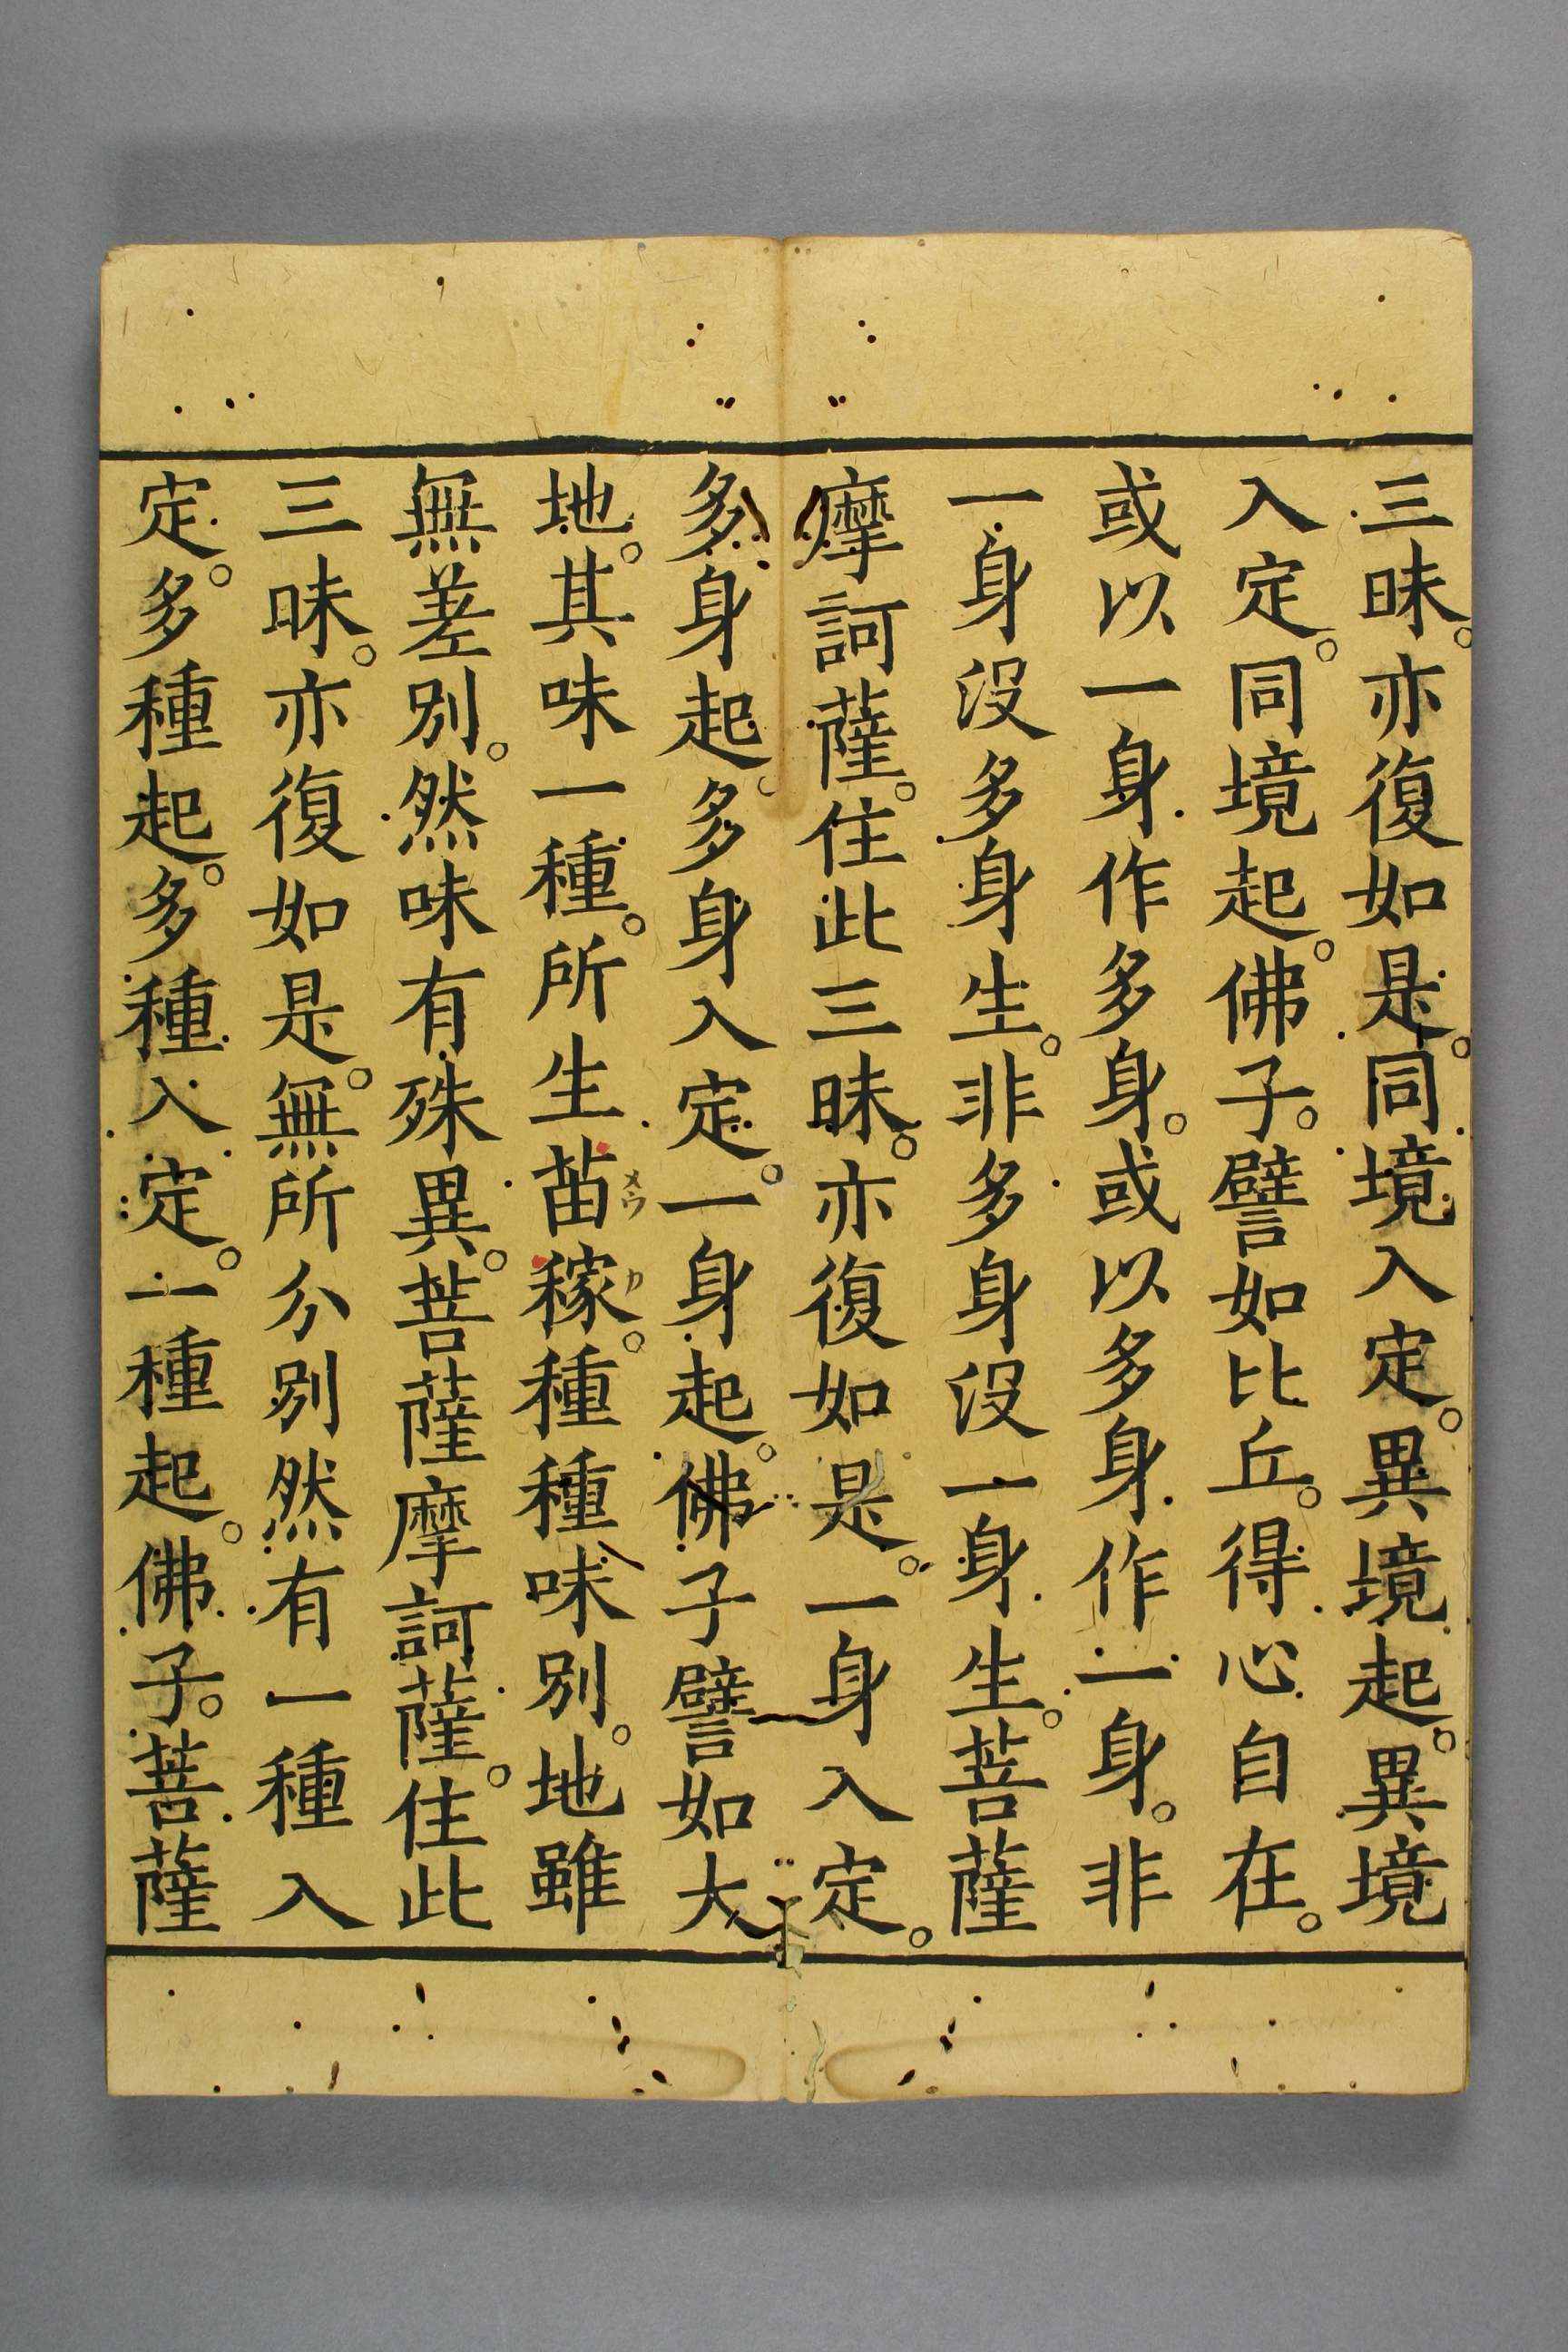 三昧。亦復如是。同境入定。異境起。異境
入定。同境起。佛子。譬如比丘。得心自在。
或以一身作多身。或以多身作一身。非
一身没多身生。非多身没一身生。菩薩
摩訶薩。住此三昧。亦復如是。一身入定。
多身起。多身入定。一身起。佛子譬如大
地。其味一種。所生苗稼。種種味別。地雖
メウ
カ
無差別。然味有殊異。菩薩摩訶薩。住此
三昧。亦復如是。無所分別然有一種入
定。多種起。多種入定。一種起。佛子。菩薩